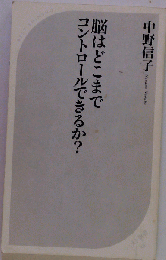 中野信子
脳はどこまで
コントロールできるか?